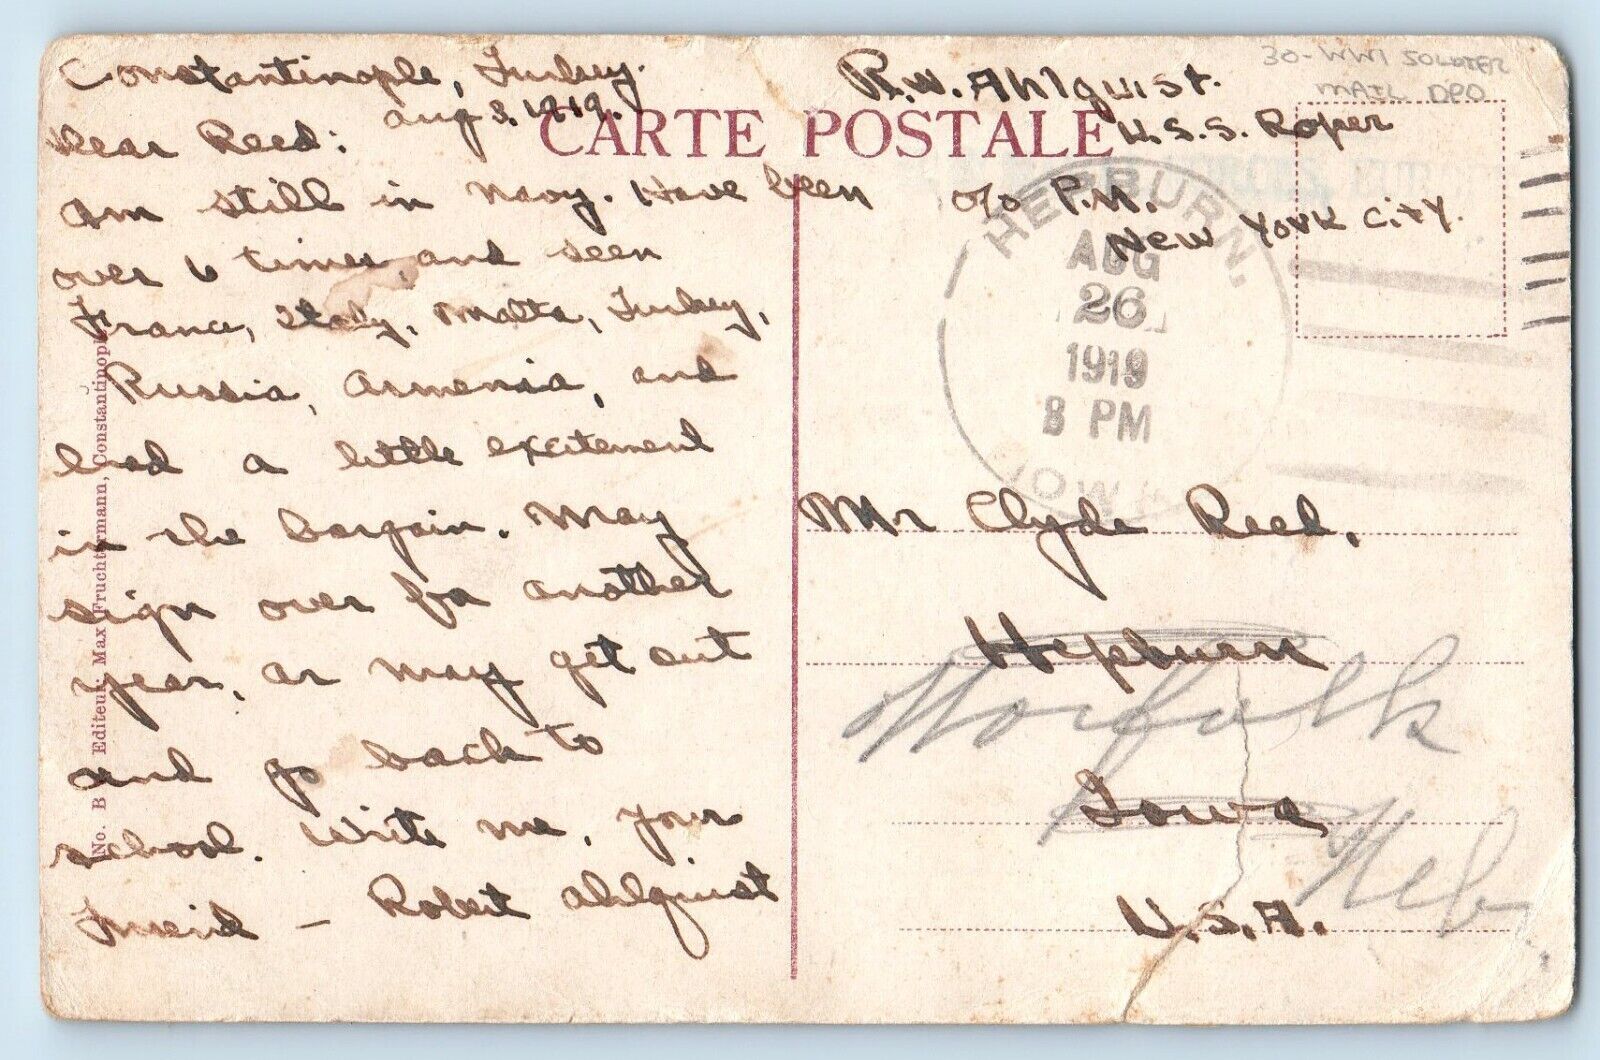 Constantinople, Turkey.
Aug 3, 1919.
Dear Reed:
Am still in Navy. Have been
over 6 times, and seen
France, Italy, Malta, Turkey,
Russia, Armenia, and
had a little excitement
in the bargain. May
sign over for another
year, or may get out
and go back to
school. Write me, your
Freind – Robert Ahlquist
No. B Editeur Max Fruchtermann, Constantinople
CARTE POSTALE
R.W. Ahlquist.
U.S.S. Roper
c/o P.M.
New York City.
30- WWI SOLDIER
MAIL DPO
HEPBURN.
AUG
26
1919
8 PM
IOWA
Mr Clyde Reed,
Hepburn
Norfolk
Iowa
Neb
U.S.A.